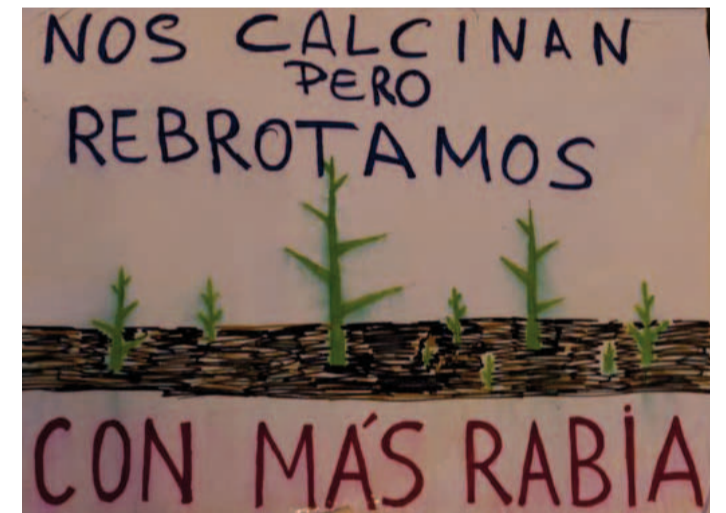 NOS CALCINAN
PERO
REBROTAMOS
CON MÁS RABIA